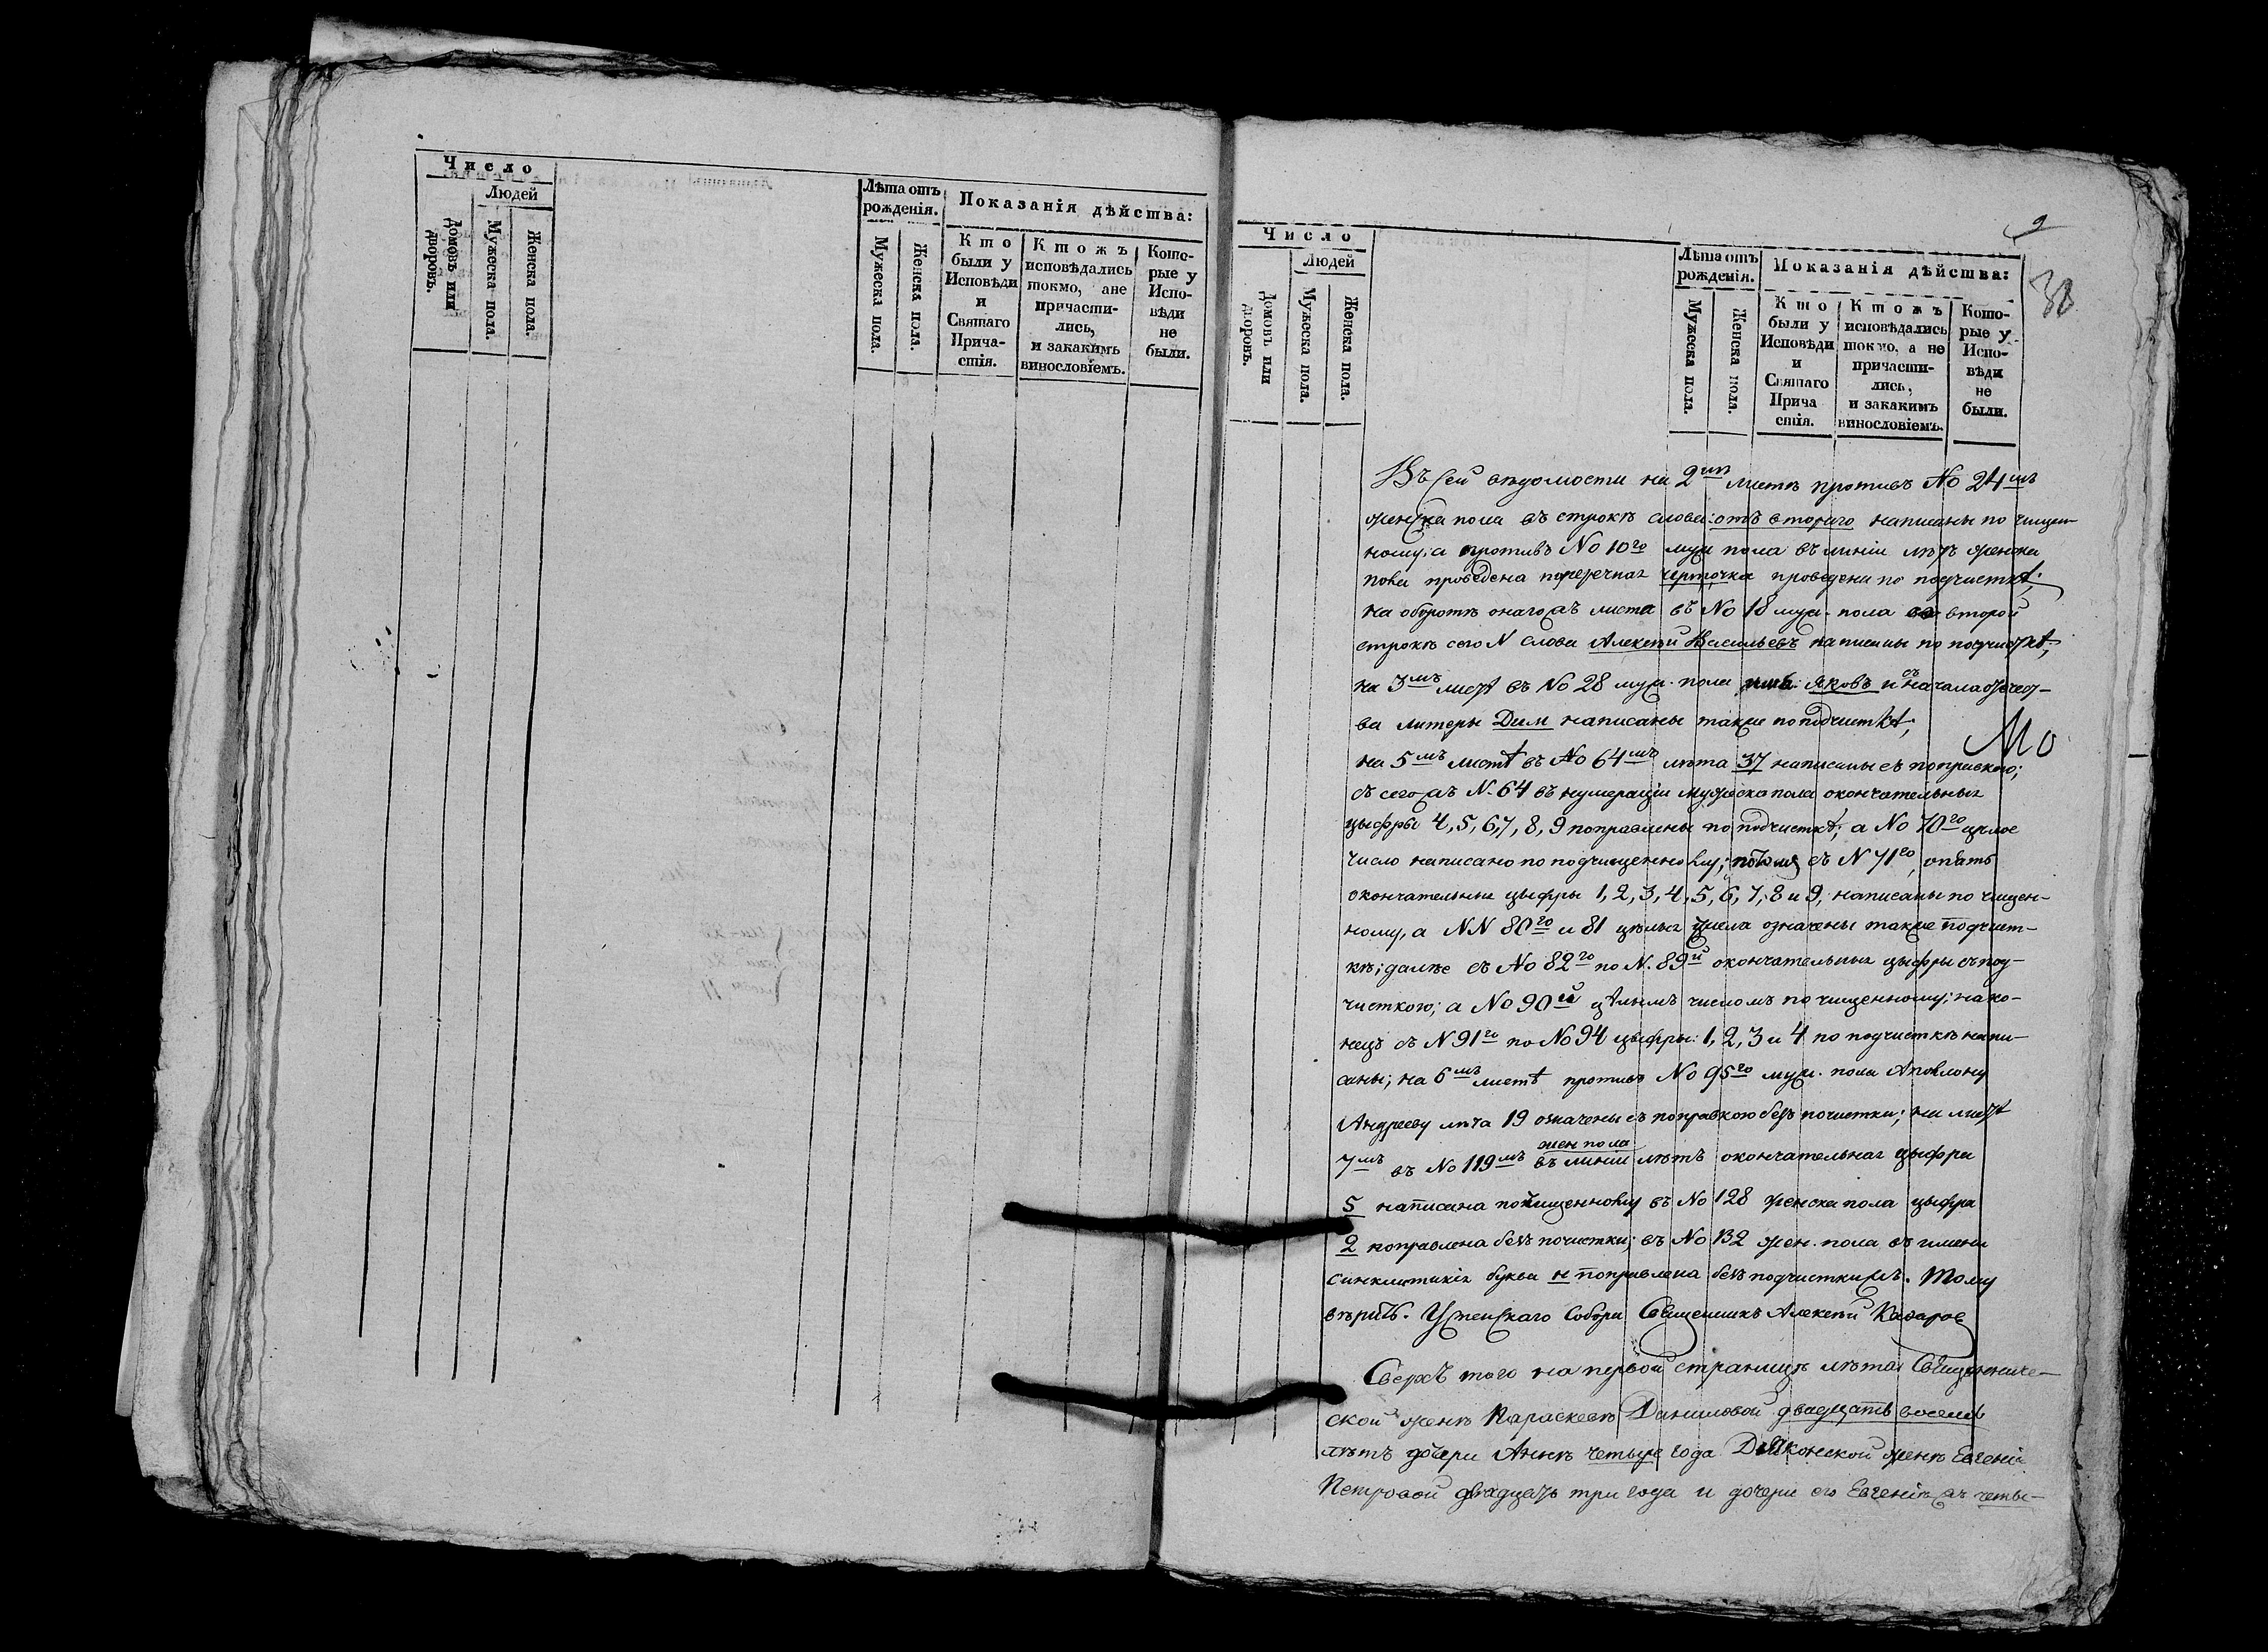 Число
Людей
Домовъ или дворовъ.
Мужеска пола.
Женска пола.
Лѣта отъ рожденія.
Мужеска пола.
Женска пола.
Показанія дѣйства:
Кто были у Исповѣди и Святаго Прича-стія.
Ктожъ исповѣдались токмо, ане причасти-лись, и закакимъ винословіемъ.
Кото-рые у Испо-вѣди не были.
9
38
Число
Людей
Домовъ или дворовъ.
Мужеска пола.
Женска пола.
Лѣта отъ рожденія.
Мужеска пола.
Женска пола.
Показанія дѣйства:
Кто были у Исповѣди и Святаго Прича стія.
Ктожъ исповѣдались токмо, а не причасти-лись, и закакимъ винословіемъ.
Кото-рые у Испо-вѣди не были.
Въ сей вѣдомости на 2мъ листѣ противъ No 24мъ
женска пола въ строкѣ слова: отъ втораго написаны по чищен-
ному; а противъ No 10го муж пола въ линіи лѣтъ женска
пола проведена поперечная черточка проведена по подчисткѣ;
на оборотѣ онагожъ листа въ No 18 муж. пола во второй
строкѣ сего N слова Алексѣй Васильевъ написаны по подчисткѣ;
на 3мъ листѣ въ No 28 муж. пола имя Яковъ и съ начала отчест-
ва литеры Дим написаны также по подчисткѣ;
Мо
на 5мъ листѣ въ No 64мъ лѣта 37 написаны съ поправкою;
съ сегожъ N. 64 въ нумераціи мужеска пола окончательныя
цыфры 4, 5, 6, 7, 8, 9 поправлены по подчисткѣ; а No 70го цѣлое
число написано по подчищенному; потомъ съ N 71го опять
окончательныя цыфры 1, 2, 3, 4, 5, 6, 7, 8 и 9, написаны по чищен-
ному, а NN 80го и 81 цѣлыя числа означены также подчист-
кѣ; далѣе съ No 82го по N. 89й окончательныя цыфры съ под-
чисткою; а No 90й цѣлымъ числомъ по чищенному; нако-
нецъ съ N 91го по No 94 цыфры: 1, 2, 3 и 4 по подчисткѣ напи-
саны; на 6мъ листѣ противъ No 95го муж. пола Аполлону
Андрееву лѣта 19 означены съ поправкою безъ почистки; на листѣ
7мъ въ No 119мъ жен пола въ линіи лѣтъ окончательная цыфра
5 написана почищенному въ No 128 женска пола цыфра
2 поправлена безъ почистки; въ No 132 жен. пола въ имени
Синклитикія буква н поправлена безъ подчистки жъ. Тому
вѣрить. Успенскаго Собора Священникъ Алексѣй
Сверхъ того на первой страницѣ лѣта Священниче-
ской женѣ Параскевѣ Даниловой двадцать восемь
лѣтъ дочери Аннѣ четыре года Діяконской женѣ Евгеніи
Петровой двадцать три года и дочери его Евгеніи жъ четы-